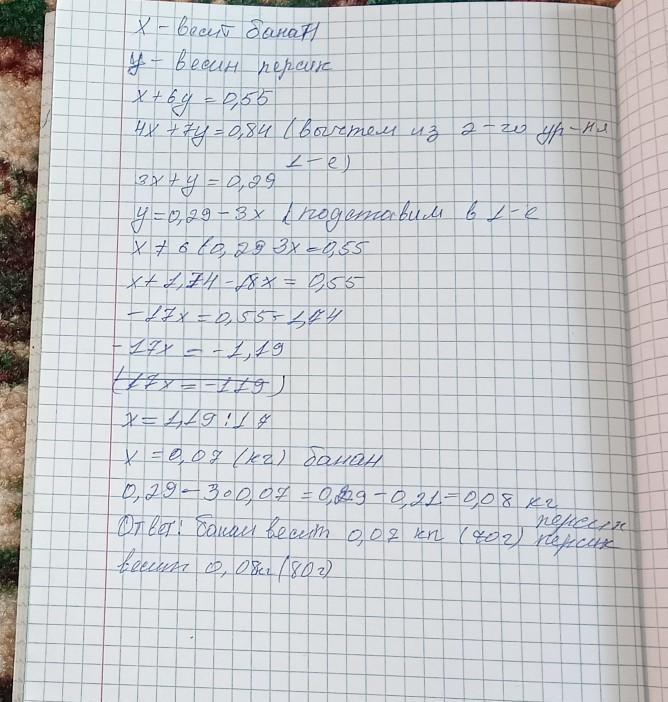 x - весит банан
y - весин персик
x + 6y = 0,55
4x + 7y = 0,84 (вычтем из 2-го ур-ня
1-е)
3x + y = 0,29
y = 0,29 - 3x (подставим в 1-е
x + 6(0,29 3x = 0,55
x + 1,74 - 18x = 0,55
-17x = 0,55 - 1,74
-17x = -1,19
(-17x = -119)
x = 1,19 : 17
x = 0,07 (кг) банан
0,29 - 3∘0,07 = 0,29 - 0,21 = 0,08 кг
персик
Ответ: банан весит 0,07 кг (70г) персик
весит 0,08кг (80г)